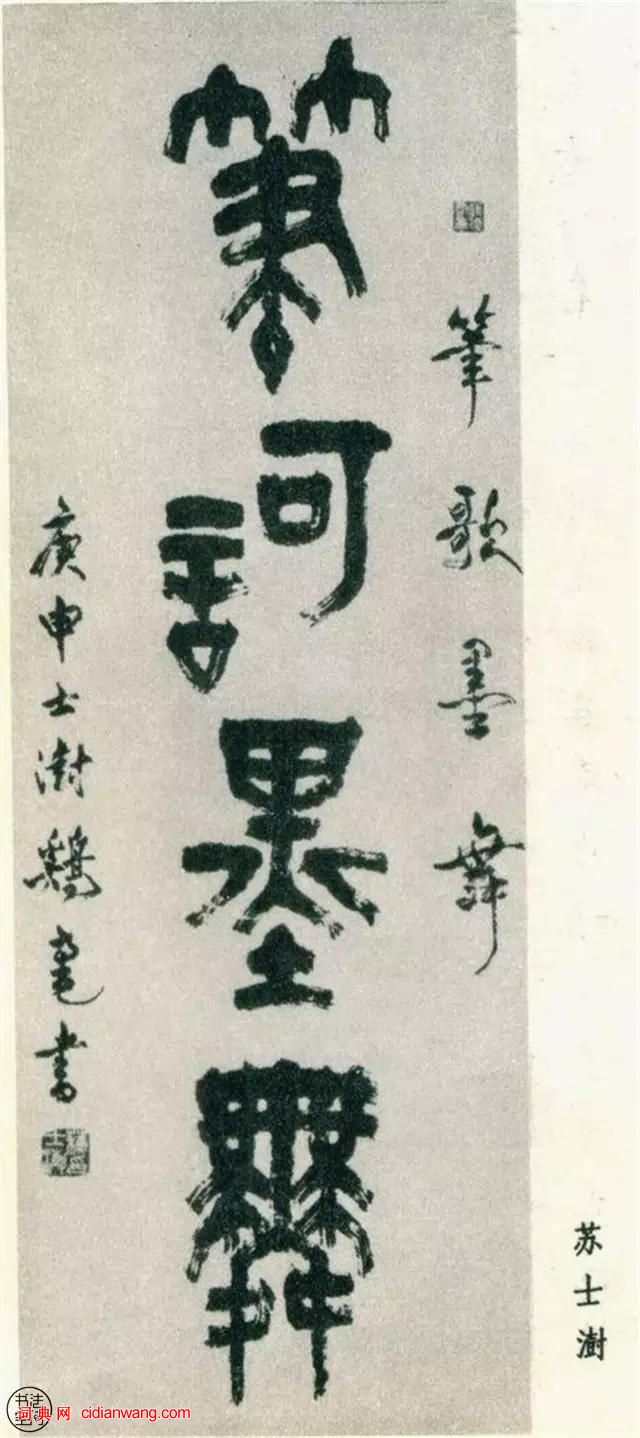 筆歌墨舞
筆訶墨舞
庚申士澍鷄毫書
苏士澍
词典网 cidianwang.com